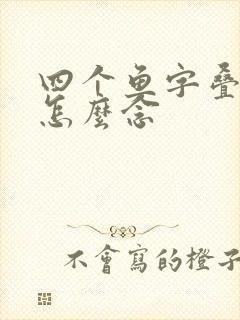 四个鱼字叠
怎麼念
不會寫的橙子